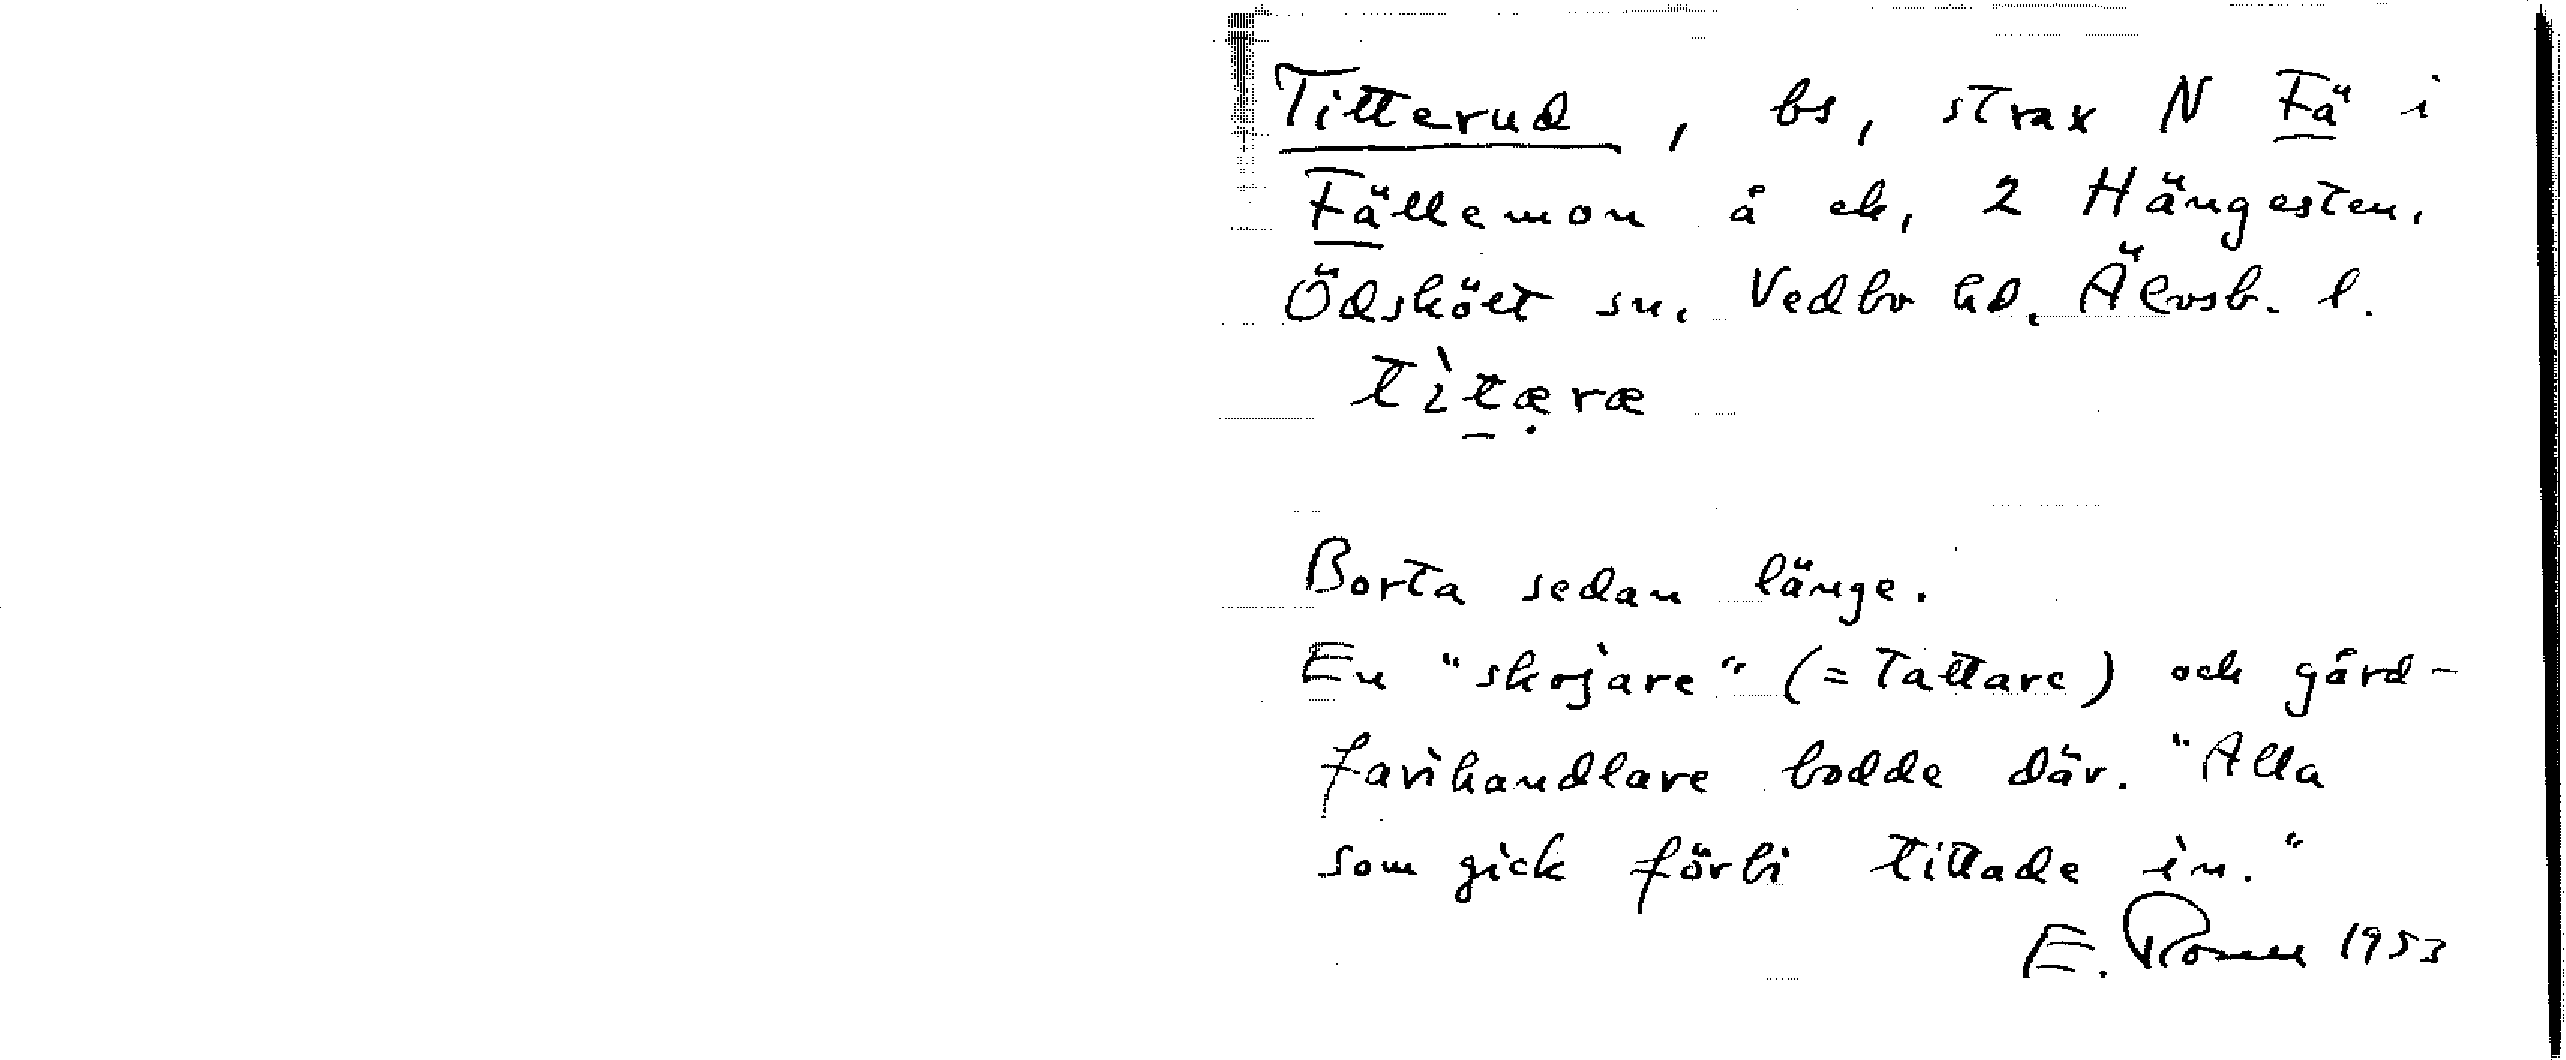 Titterud, bs, strax N Fä i
Fällemon å ek, 2 Hängesten,
Ödskölt sn. Vedbo hd, Älvsb. l.
tìtæræ
Borta sedan länge.
En "skojare" (= tattare) och gård-
farihandlare bodde där. "Alla
som gick förbi tittade in."
E. 1953